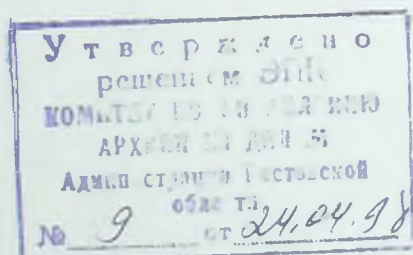 Утверждено
решением ЭПК
КОМИТЕТА ПО УПРАВЛЕНИЮ
АРХИВНЫМ ДЕЛОМ
Администрации Ростовской
области
№ 9 от 24.04.98